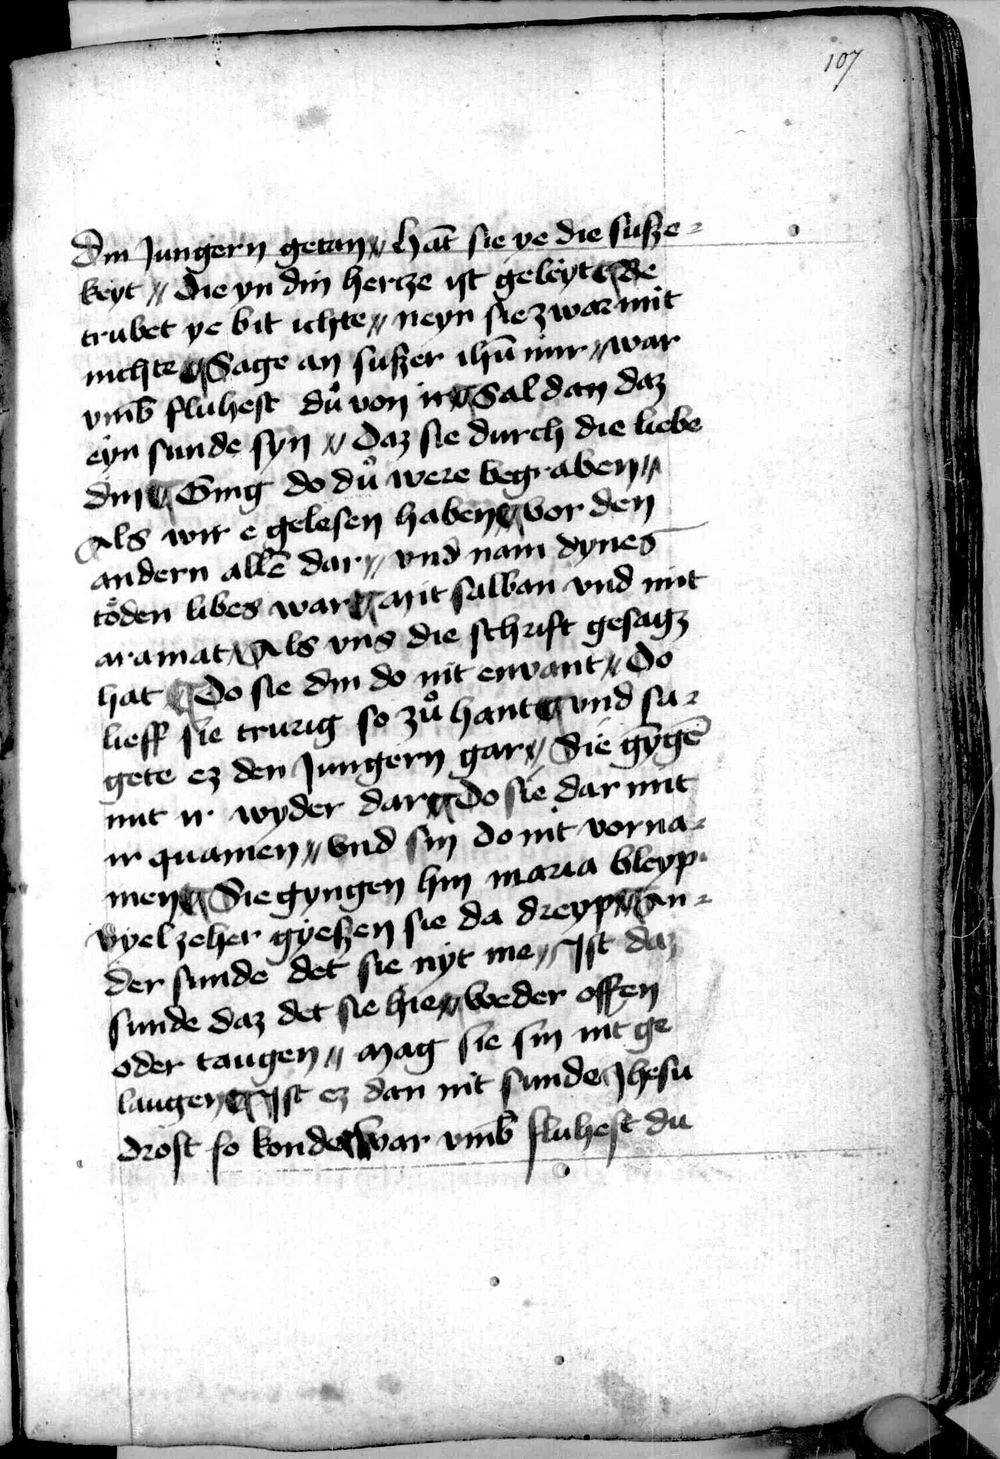 107
Din Jungern getan〃 hāt sie ye die susze⸗
keyt〃 Die yn din hertze ist geleyt¶ Be
trubet ye bit ichte〃 neyn sie zwar mit
nichte¶ Sage an suszer ihū mir〃 war
vmb fluhest dů von ir¶ Sal dan daz
eyn sunde syn〃 Daz sie durch die liebe
din¶ Ging do dů were begraben〃
Als wir e gelesen haben¶ vor den
andern allē dar〃 vnd nam dynes
toͤden libes war¶ mit salban vnd mit
aramat〃 Als vns die schrift gesagz
hat¶ Do sie din do nit envant〃 Do
lieff sie trurig so zů hant¶ vnd sa⸗
gete ez den Jungern gar〃 Sie gyngē
mit ir wyder dar¶ Do sie dar mit
ir quamen〃 vnd sin do nit vorna⸗
men¶ Sie gyngen hin maria bleyp
vyel zeher gyeszen sie da dreyp¶ An⸗
der sunde det sie nyt me〃 Ist daz
sunde daz det sie hie〃 weder offen
oder taugen〃 mag sie sin nit ge
laugen¶ Ist ez dan nit sunde Jhesu
drost so konde¶ war vmb fluhest du